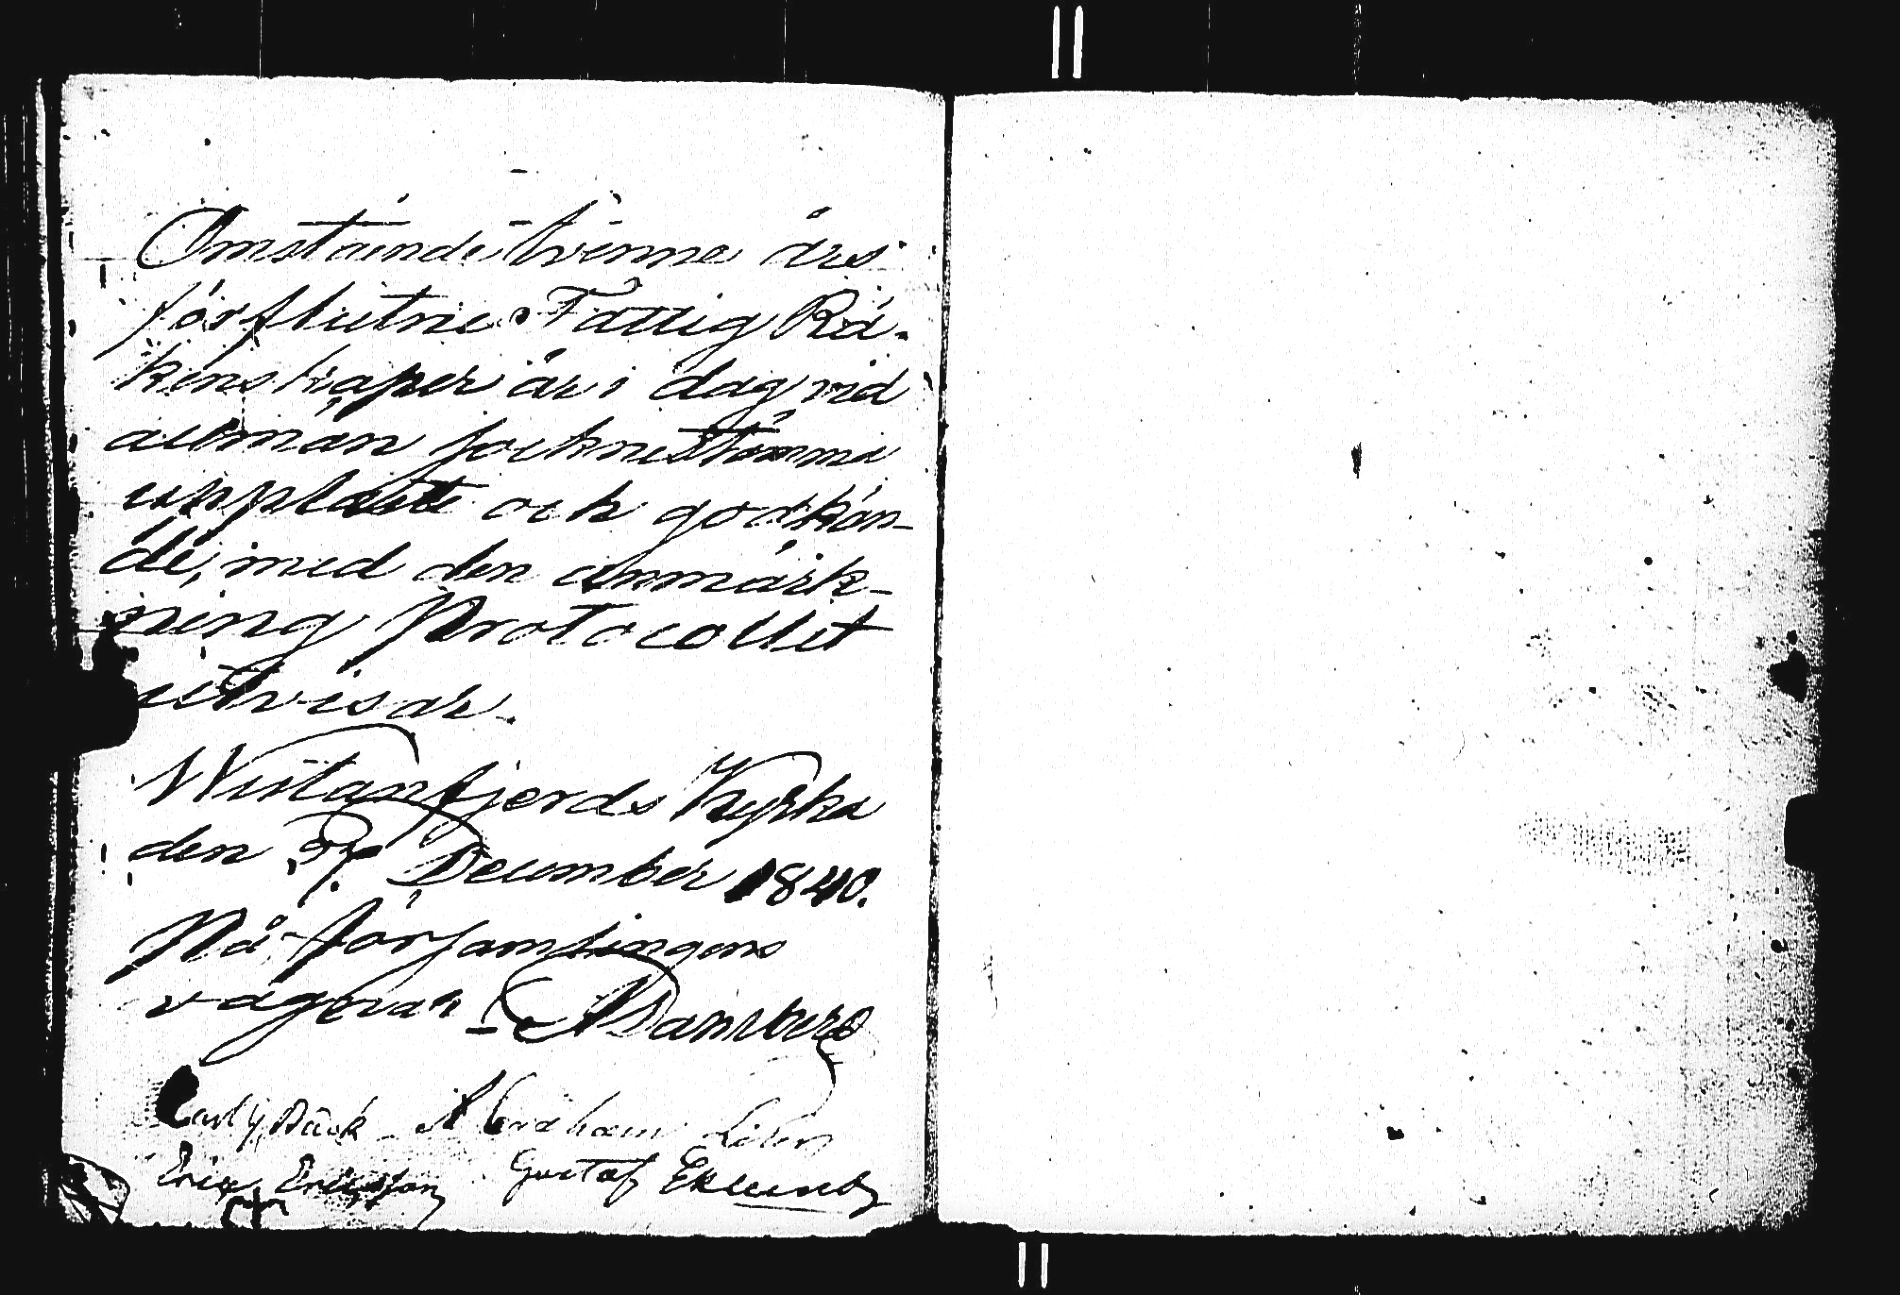 Omstående tvenne års
förflutne Fattig Rä-
kenskaper är i dag vid
allmän socknestämma
uppläste och godkän-
de, med den anmärk-
ning Protocollet
utvisar.
Westanfjerds Kyrka
den 27 December 1840.
På Församlingens
vägnar
Carl J. Bäck Abraham
Eric Ericsson Gustaf Eklund